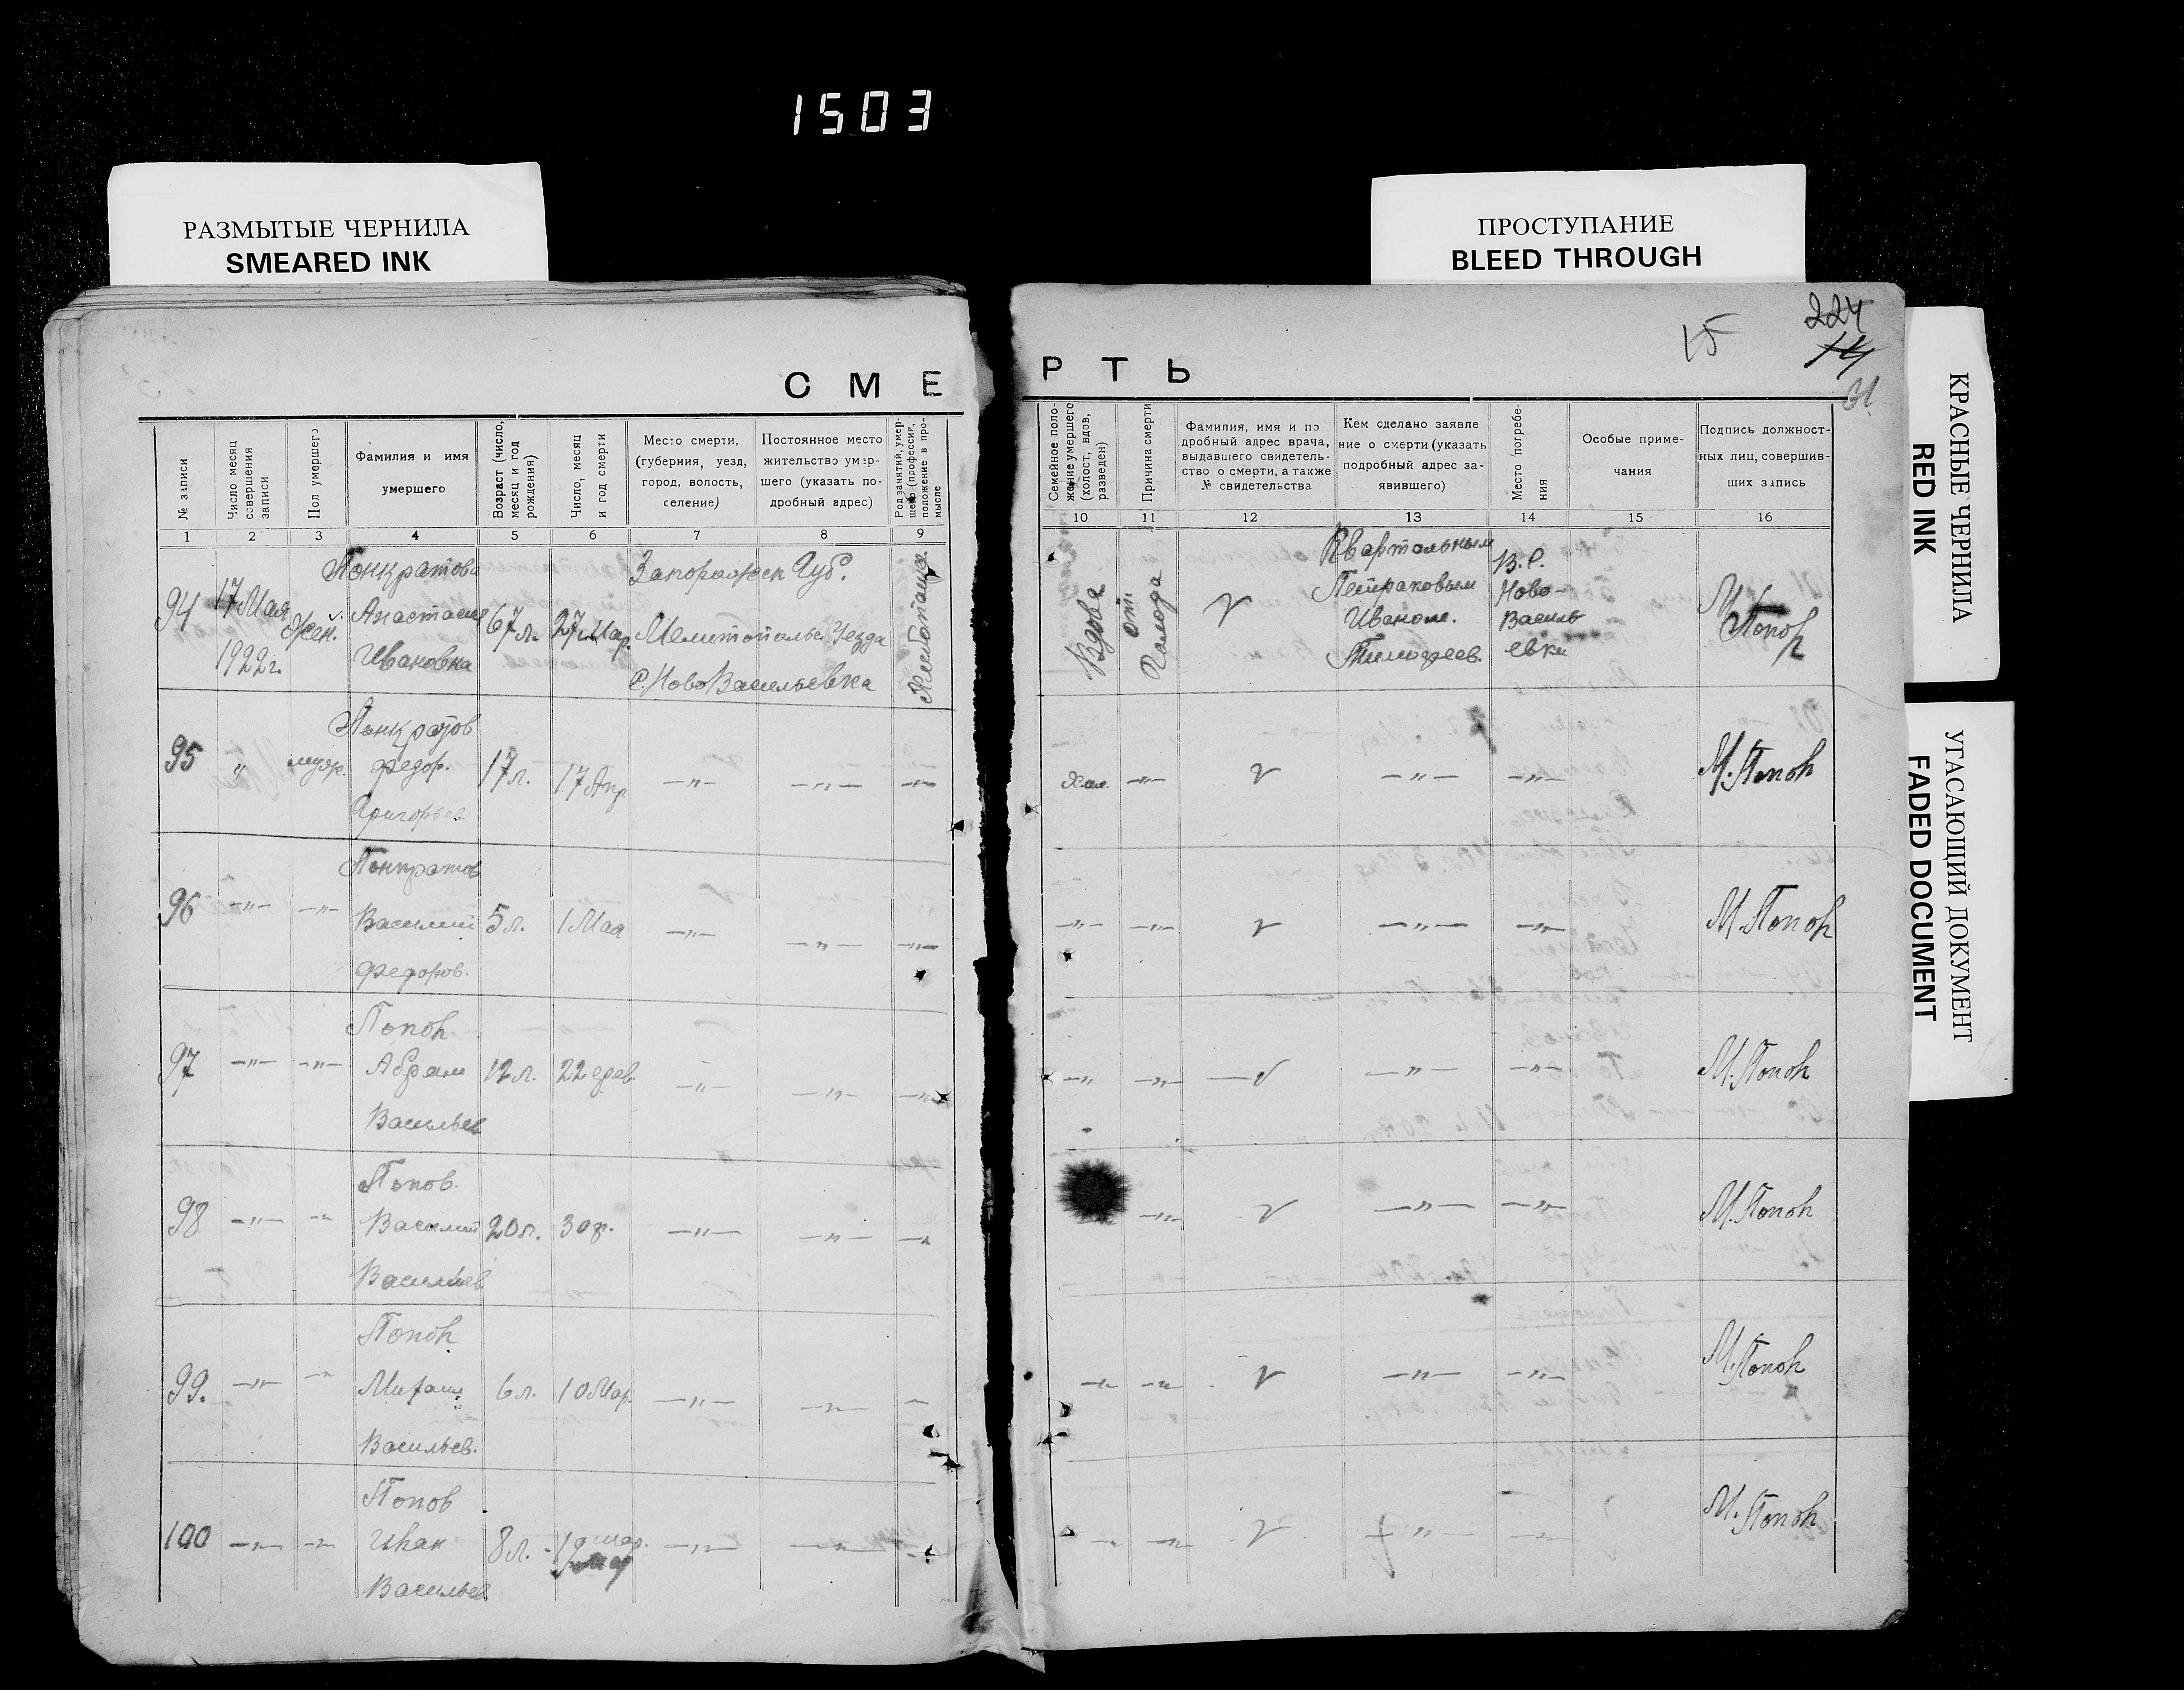 1503
РАЗМЫТЫЕ ЧЕРНИЛА
SMEARED INK
ПРОСТУПАНИЕ
BLEED THROUGH
КРАСНЫЕ ЧЕРНИЛА
RED INK
УГАСАЮЩИЙ ДОКУМЕНТ
FADED DOCUMENT
15
224
14
31
СМЕРТЬ
№ записи
Число месяц совершения записи
Пол умершего
Фамилия и имя умершего
Возраст (число, месяц и год рождения)
Число, месяц и год смерти
Место смерти, (губерния, уезд, город, волость, селение)
Постоянное место жительство умершего (указать подробный адрес)
Род занятий, умершего (профессия, положение в промысле
Семейное положение умершего (холост, вдов, разведен)
Причина смерти
Фамилия, имя и подробный адрес врача, выдавшего свидетельство о смерти, а также № свидетельства
Кем сделано заявление о смерти (указать подробный адрес заявившего)
Место погребения
Особые примечания
Подпись должностных лиц, совершивших запись
1 2 3 4 5 6 7 8 9 10 11 12 13 14 15 16
94
17 Мая
1922 г.
Жен.
Понкратова
Анастасия
Ивановна
67 л.
27 Мар.
Запорожск Губ.
Мелитопольс Уезда
С. Ново Васильевка
Вдова
от
Голода
Квартальным
Петраковым
Иваном.
Тимофеев.
В. С.
Ново-
Василь
евки
М. Попов
95 " муж.
Понкратов
Федор.
Григорьев
17 л. 17 Апр —"— —"— —"—
Хол. —"— —"— —"—
М. Попов
96 —"— —"—
Понкратов
Василий
Федоров.
5 л. 1 Мая —"— —"— —"—
—"— —"— —"— —"—
М. Попов
97 —"— —"—
Попов
Абрам
Васильев
12 л. 22 фев. —"— —"— —"—
—"— —"— —"— —"—
М. Попов
98 —"— —"—
Попов.
Василий
Васильев
20 л. —"— —"— —"—
—"— —"— —"—
М. Попов
99. —"— —"—
Попов
Михаил
Васильев.
6 л. 10 Мар. —"— —"—
—"— —"— —"— —"—
М. Попов
100 —"— —"—
Попов
Иван
Васильев
8 л. 19 мар. —"— —"—
—"— —"— —"—
М. Попов